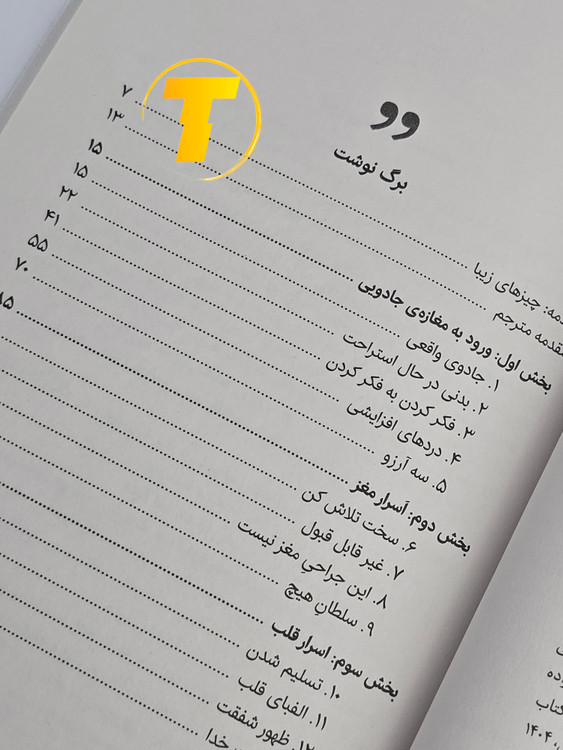 T
برگ نوشت
چیزهای زیبا ........ ۷
مقدمه مترجم ........ ۱۳
بخش اول: ورود به مغازه‌ی جادویی ........ ۱۵
۱. جادوی واقعی ........ ۱۵
۲. بدنی در حال استراحت ........ ۲۲
۳. فکر کردن به فکر کردن ........ ۴۱
۴. دردهای افزایشی ........ ۵۵
۵. سه آرزو ........ ۷۰
بخش دوم: اَسرار مغز ........ ۸۵
۶. سخت تلاش کن ........
۷. غیر قابل قبول ........
۸. این جراحیِ مغز نیست ........
۹. سلطانِ هیچ ........
بخش سوم: اسرار قلب ........
۱۰. تسلیم شدن ........
۱۱. الفبای قلب ........
۱۲. ظهور شفقت ........
خدا ........
کتاب
۱۴۰۴